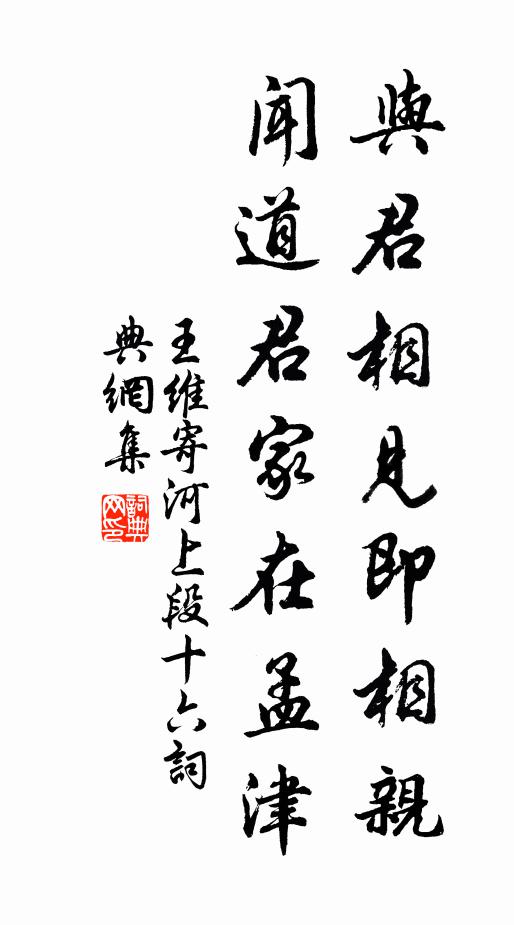 與君相見即相親
聞道君家在孟津
王維寄河上段十六詞
典網集
詞典網印